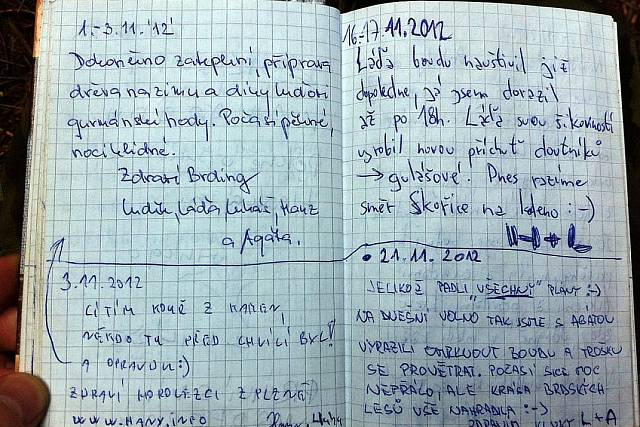 1.-3.11.'12'
Dokončeno zateplení, příprava
dřeva na zimu a díky Luďovi
gurmánské hody. Počasí pěkné,
noci klidné.
Zdraví Brding
Luděk, Láďa, Lukáš, Hanz
a Agáta.
3.11.2012
CÍTÍM KOUŘ Z KAMEN,
NĚKDO TU PŘED CHVÍLÍ BYL!
A OPRAVDU :)
ZDRAVÍ Z PLZNĚ
WWW.HANY.INFO
16.-17.11.2012
Láďa boudu navštívil již
dopoledne, já jsem dorazil
až po 18h. Láďa svou šikovností
vyrobil novou příchuť doutníků
→ gulášové. Dnes razíme
směr Skořice na ledeno :-)
21.11.2012
JELIKOŽ PADLI "VŠECHNY" PLÁNY :-)
NA DNEŠNÍ VOLNO TAK JSME S AGÁTOU
VYRAZILI OMRKNOUT BOUDU A TROŠKU
SE PROVĚTRAT. POČASÍ SICE MOC
NEPŘÁLO, ALE KRÁSA BRDSKÝCH
LESŮ VŠE NAHRADILA :-)
L+A